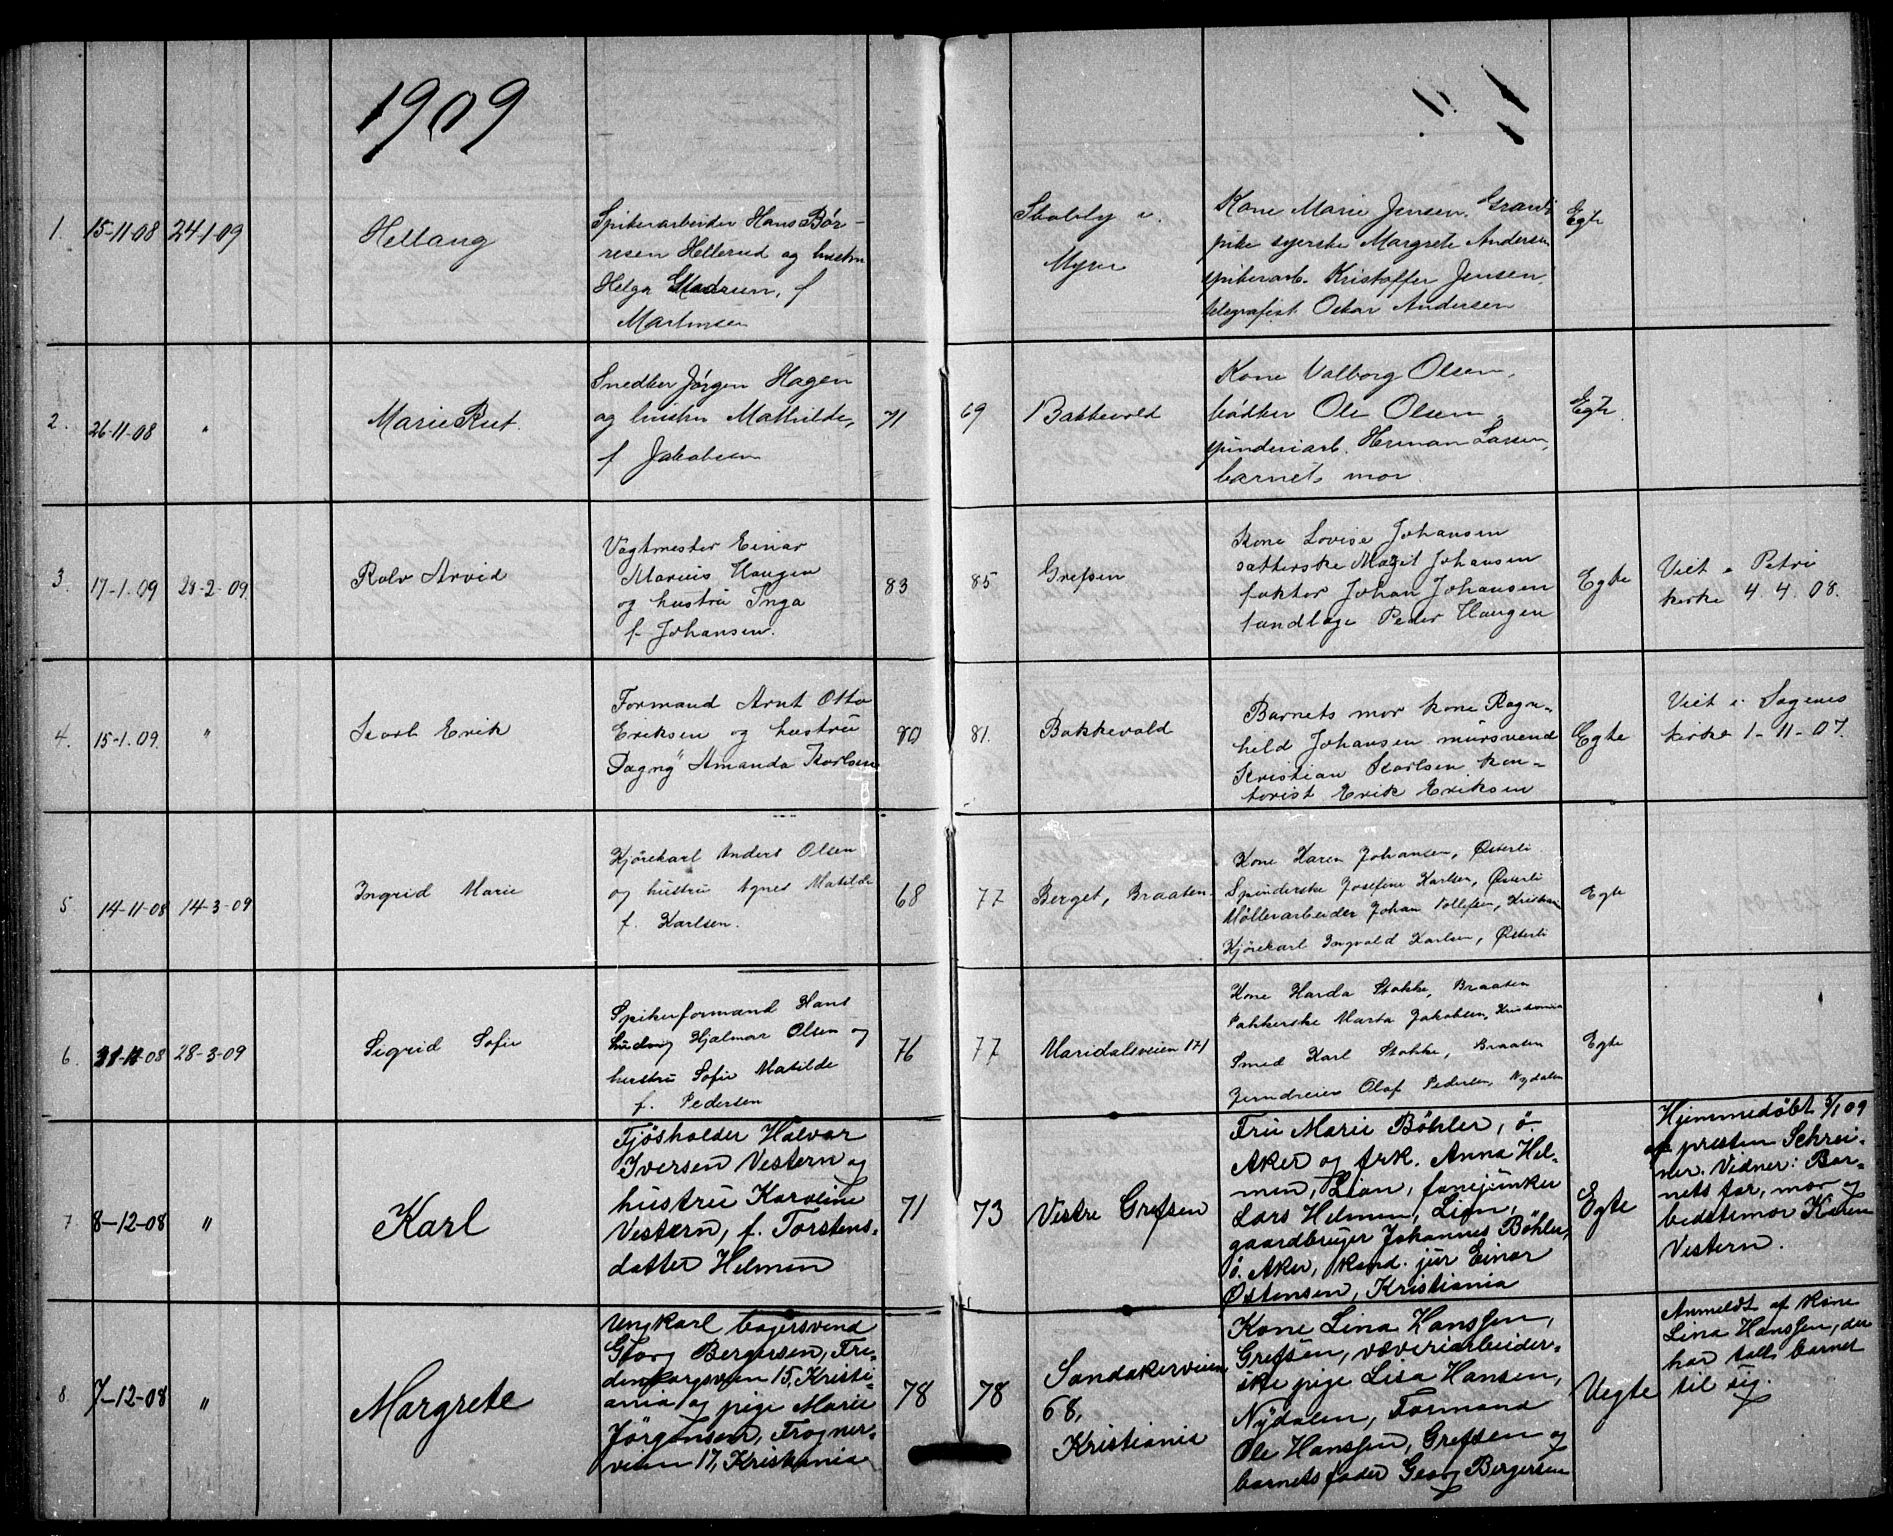 1909
1. 15-11-08 24-1-09
Spikerarbeider Hans Bør-
resen Hellerud og hustru
Helga
f
Martinsen
Myrer
Kone Marie Jensen.
pike syerske Margrete Andersen
spikerarb. Kristoffer Jensen,
telegrafist Oskar Andersen
Egte
2. 26-11-08 "
Marie Rut.
Snedker Jørgen Hagen
og hustru Mathilde,
f Jakobsen
71
69
Bakkevold
Kone Valborg Olsen,
bødker Ole Olsen,
spinderiarb. Herman Larsen,
barnets mor.
Egte
3. 17-1-09 28-2-09.
Rolv Arvid
Vagtmester Einar
Marius Haugen
og hustru Inga
f. Johansen.
83
85
Grefsen
Kone Lovise Johansen
satterske Magit Johansen
faktor Johan Johansen
tandlæge Peder Haugen
Egte
Viet i Petri
kirke 4-4.08.
4. 15-1.09. "
Karl Erik
Formand Arnt Otto
Eriksen og hustru
Dagny Amanda Karlsen
80
81.
Bakkevold
Barnets mor kone Ragn-
hild Johansen mursvend
Kristian Karlsen kon-
torist Erik Eriksen
Egte
Viet i Sagenes
kirke 1-11-07.
5. 14-11-08 14-3-09
Ingrid Marie
Kjørekarl Anders Olsen
og hustru Agnes Matilde
f. Karlsen.
68
77
Berget, Braaten.
Kone Karen Johansen, Østerli
Spinderske Josefine Karlsen, Østerli
Møllerarbeider Johan Tollefsen, Kristiania
Kjørekarl Ingvald Karlsen, Østerli
Egte
6. 28-3-09
Sigrid Sofie
Spikerformand Hans
Ludvig Hjalmar Olsen og
hustru Sofie Matilde
f. Pedersen
76
77
Maridalsveien 171
Kone Harda Stokke, Braaten
Pakkerske Marta Jakobsen, Kristiania
Smed Karl Stokke, Braaten
Jerndreier Olaf Pedersen, Nydalen
Egte
7. 8-12-08 "
Karl
Fjøsholder Halvar
Iversen Vestern og
hustru Karoline
Vestern, f. Torstens-
datter Helmen
71
73
Vestre Grefsen
Fru Marie Bøhler, ø.
Aker og frk. Anna Hel-
men, Lian, fanejunker
Lars Helmen, Lian,
gaardbruger Johannes Bøhler,
ø. Aker, kand. jur Einar
Østensen, Kristiania
Egte
Hjemmedøbt 5/1 09
af presten Schrei-
ner. Vidner: Bar-
nets far, mor og
bedstemor Karen
Vestern.
8. 7-12-08 "
Margrete
Ungkarl bagersvend
Georg Bergersen, Fre-
densborgsveien 15, Kristi-
ania og pige Marie
Jørgensen, Frogner-
veien 17, Kristiania
78
78
Sandakerveien
68,
Kristiania
Kone Lina Hanssen,
Grefsen, væveriarbeider-
ske pige Lisa Hansen,
Nydalen, Formand
Ole Hanssen, Grefsen og
barnets fader Georg Bergersen
Uegte
Anmeldt af kone
Lina Hanssen, der
har tat barnet
til sig.